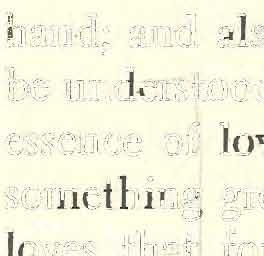 hand; and als
be understood
essence of lov
something gre
loves that for